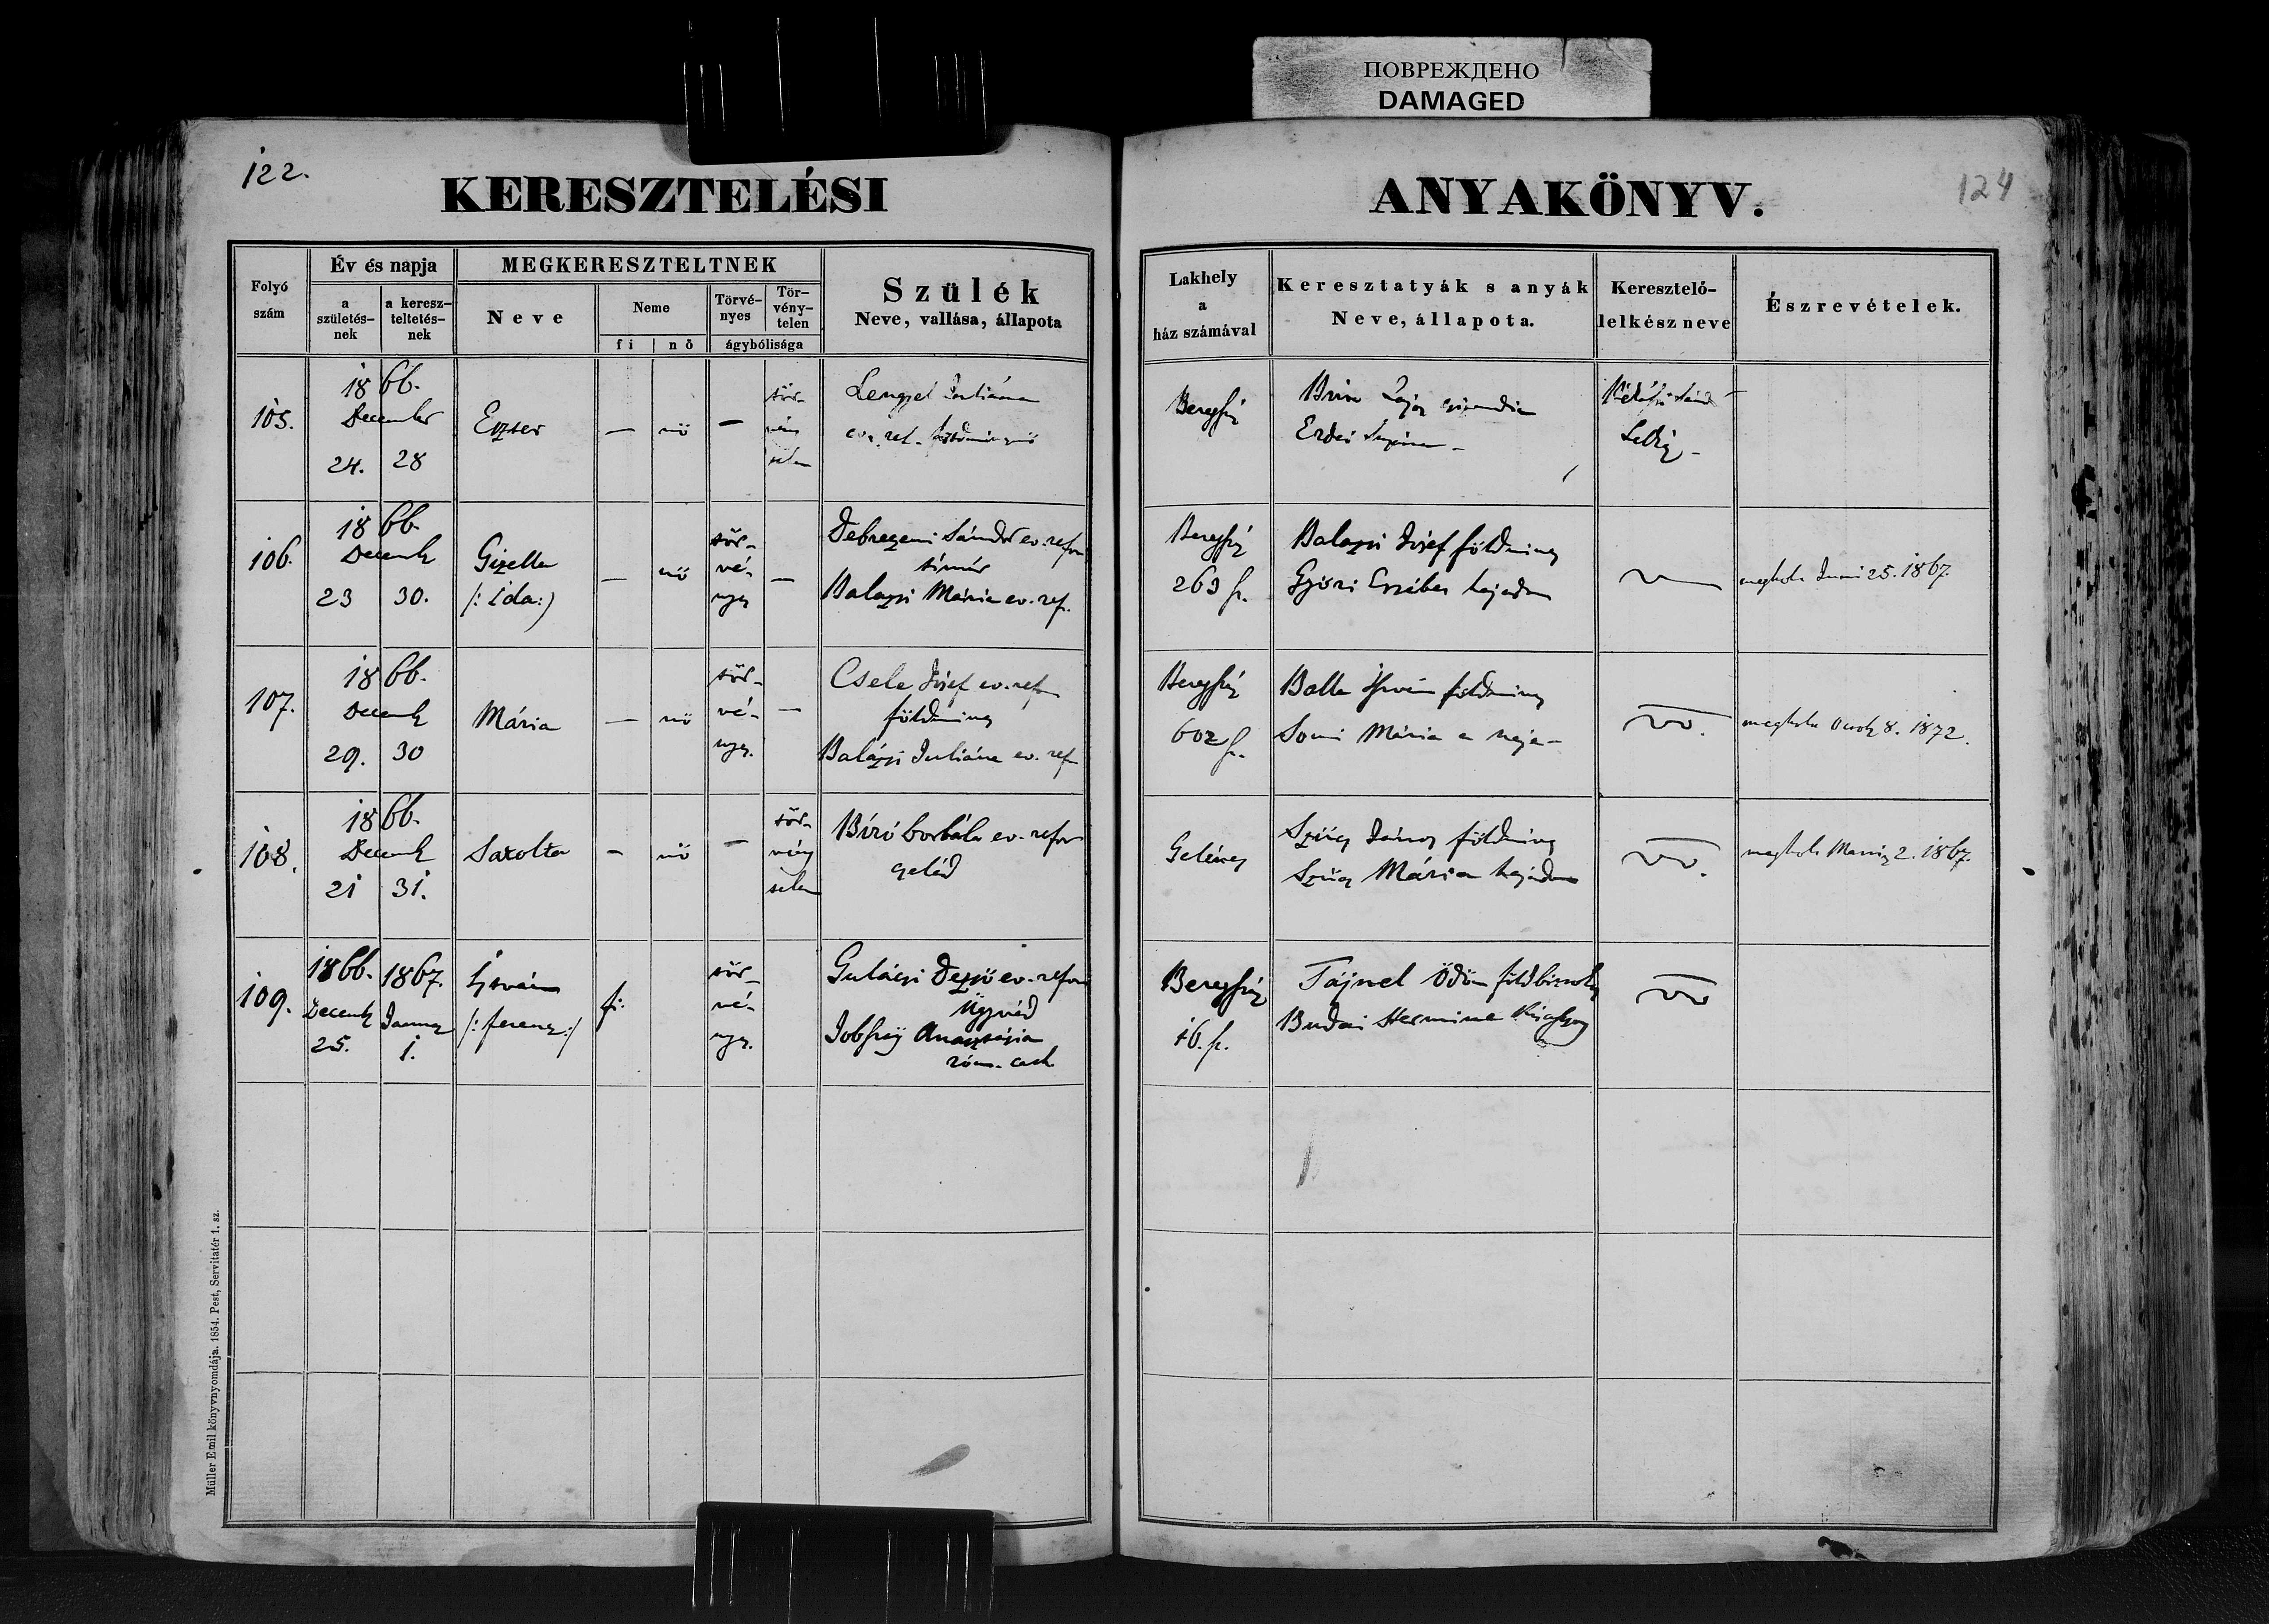 ПОВРЕЖДЕНО
DAMAGED
122.
KERESZTELÉSI
ANYAKÖNYV.
124
Folyó
szám
Év és napja
a
születés-
nek
a keresz-
teltetés-
nek
MEGKERESZTELTNEK
Neve
Neme
fi
nő
Törvé-
nyes
Tör-
vény-
telen
ágybólisága
Szülék
Neve, vallása, állapota
Lakhely
a
ház számával
Keresztatyák s anyák
Neve, állapota.
Keresztelő-
lelkész neve
Észrevételek.
105.
1866.
December
24. 28
—
nö
—
tör-
vény
telen
Lengyel Juliána
ev. ref.
Beregszász
Lajos
Erdei
106.
1866.
Decemb
23 30.
Gizella
(:Ida:)
—
nö
tör-
vé-
nyes
—
Debreczeni Sándor ev. refor
timár
Balazsi Mária ev. ref.
Beregszász
263 sz.
Balazsi Jósef földmives
Györi Erzsébet hajadon
megholt Juni 25. 1867.
107.
1866.
Decemb
29. 30
Mária
—
nö
tör-
vé-
nyes.
—
Csele Jósef ev. refor
földmives
Balázsi Juliána ev. ref
Beregszász
602 sz.
Balla István földmives
Mária a neje
megholt 8. 1872.
108.
1866.
Decemb
21 31.
Sarolta
—
nö
—
tör-
vény
telen
Biró borbála ev. refor
cseléd
Gelénes
Szücs János földmives
Szücs Mária hajadon
megholt 2. 1867.
109.
1866.
Decemb
25.
1867.
Januar
1.
István
(:ferencz:)
fi:
tör-
vé-
nyes.
Gulácsi Dezsö ev. refor
ügyvéd
Anasztásia
róm. cath
Beregszász
16. sz.
Tájnel Ödön földbirtokos
Budai Hermine
Müller Emil könyvnyomdája. 1854. Pest, Servitatér 1. sz.